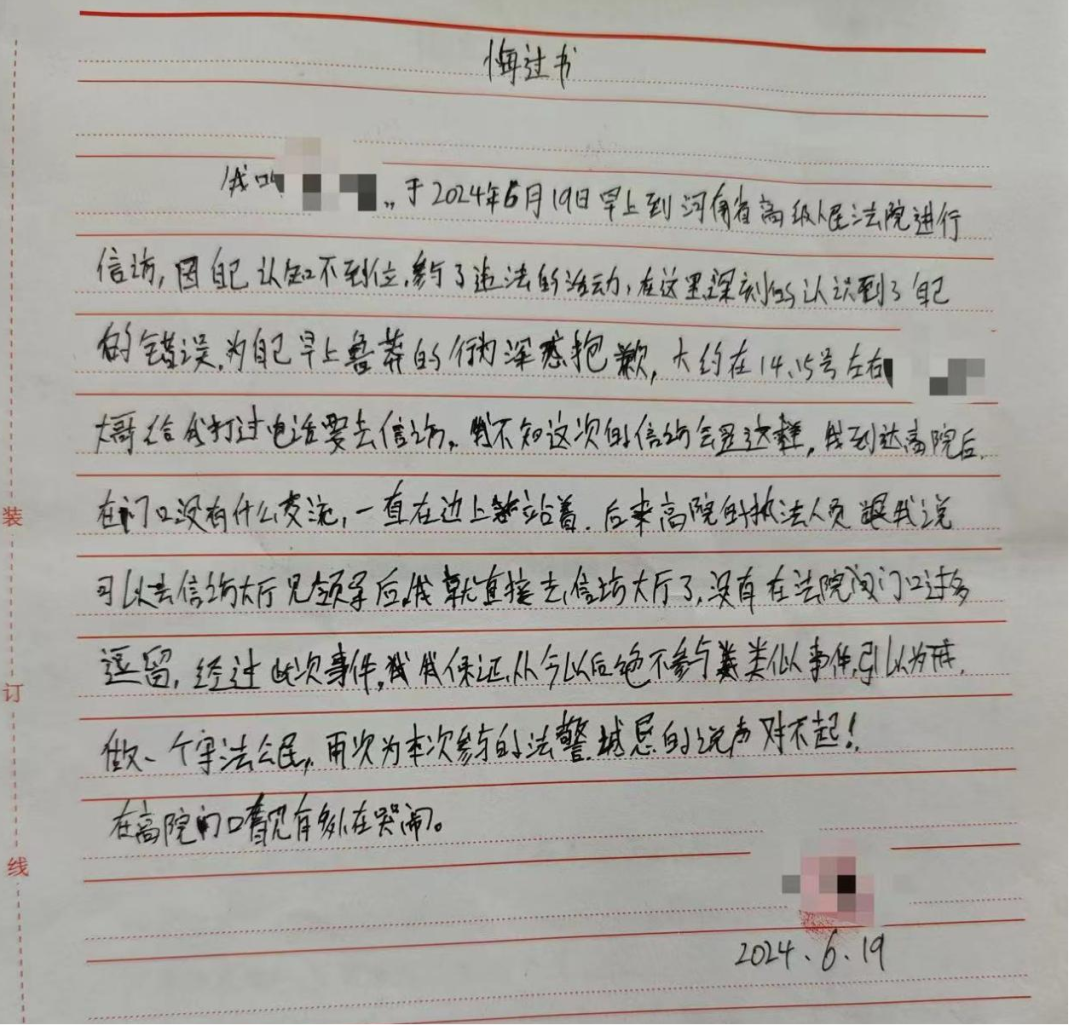 悔过书
我叫 ,,于2024年6月19日早上到河南省高级人民法院进行
信访,因自己认知不到位.参与了违法的活动,在这里深刻的认识到了自己
的错误,为自己早上鲁莽的行为深感抱歉,大约在14.15号左右
大哥给我打过电话要去信访,我不知这次的信访会是这样,我到达高院后.
在门口没有什么交流,一直在边上站着.后来高院的执法人员跟我说
可以去信访大厅见领导后,我就直接去信访大厅了,没有在法院门口过多
逗留,经过此次事件,我我保证,从今以后绝不参与类似事件,引以为戒.
做一个守法公民,再次为本次参与的法警诚恳的说声对不起!
在高院门口看见有多人在哭闹。
2024.6.19
装
订
线